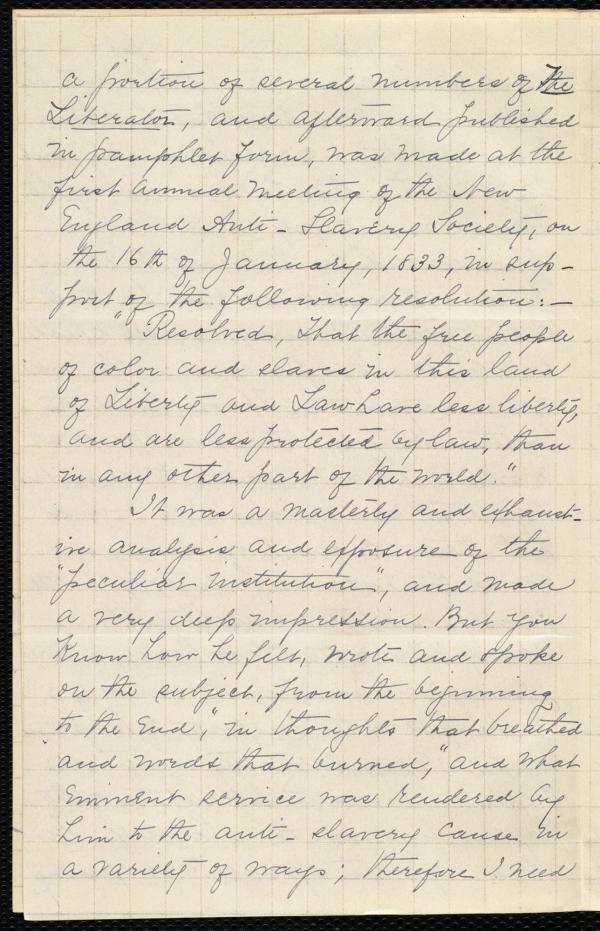 a portion of several numbers of The
Liberator, and afterward published
in pamphlet form, was made at the
first annual meeting of the New
England Anti-Slavery Society, on
the 16th of January, 1833, in sup-
port of the following resolution:—
"Resolved, That the free people
of color and slaves in this land
of Liberty and Law have less liberty,
and are less protected by law, than
in any other part of the world."
It was a masterly and exhaust-
ive analysis and exposure of the
"peculiar institution", and made
a very deep impression. But you
know how he felt, wrote and spoke
on the subject, from the beginning
to the end, "in thoughts that breathed
and words that burned," and what
eminent service was rendered by
him to the anti-slavery cause in
a variety of ways; therefore I need